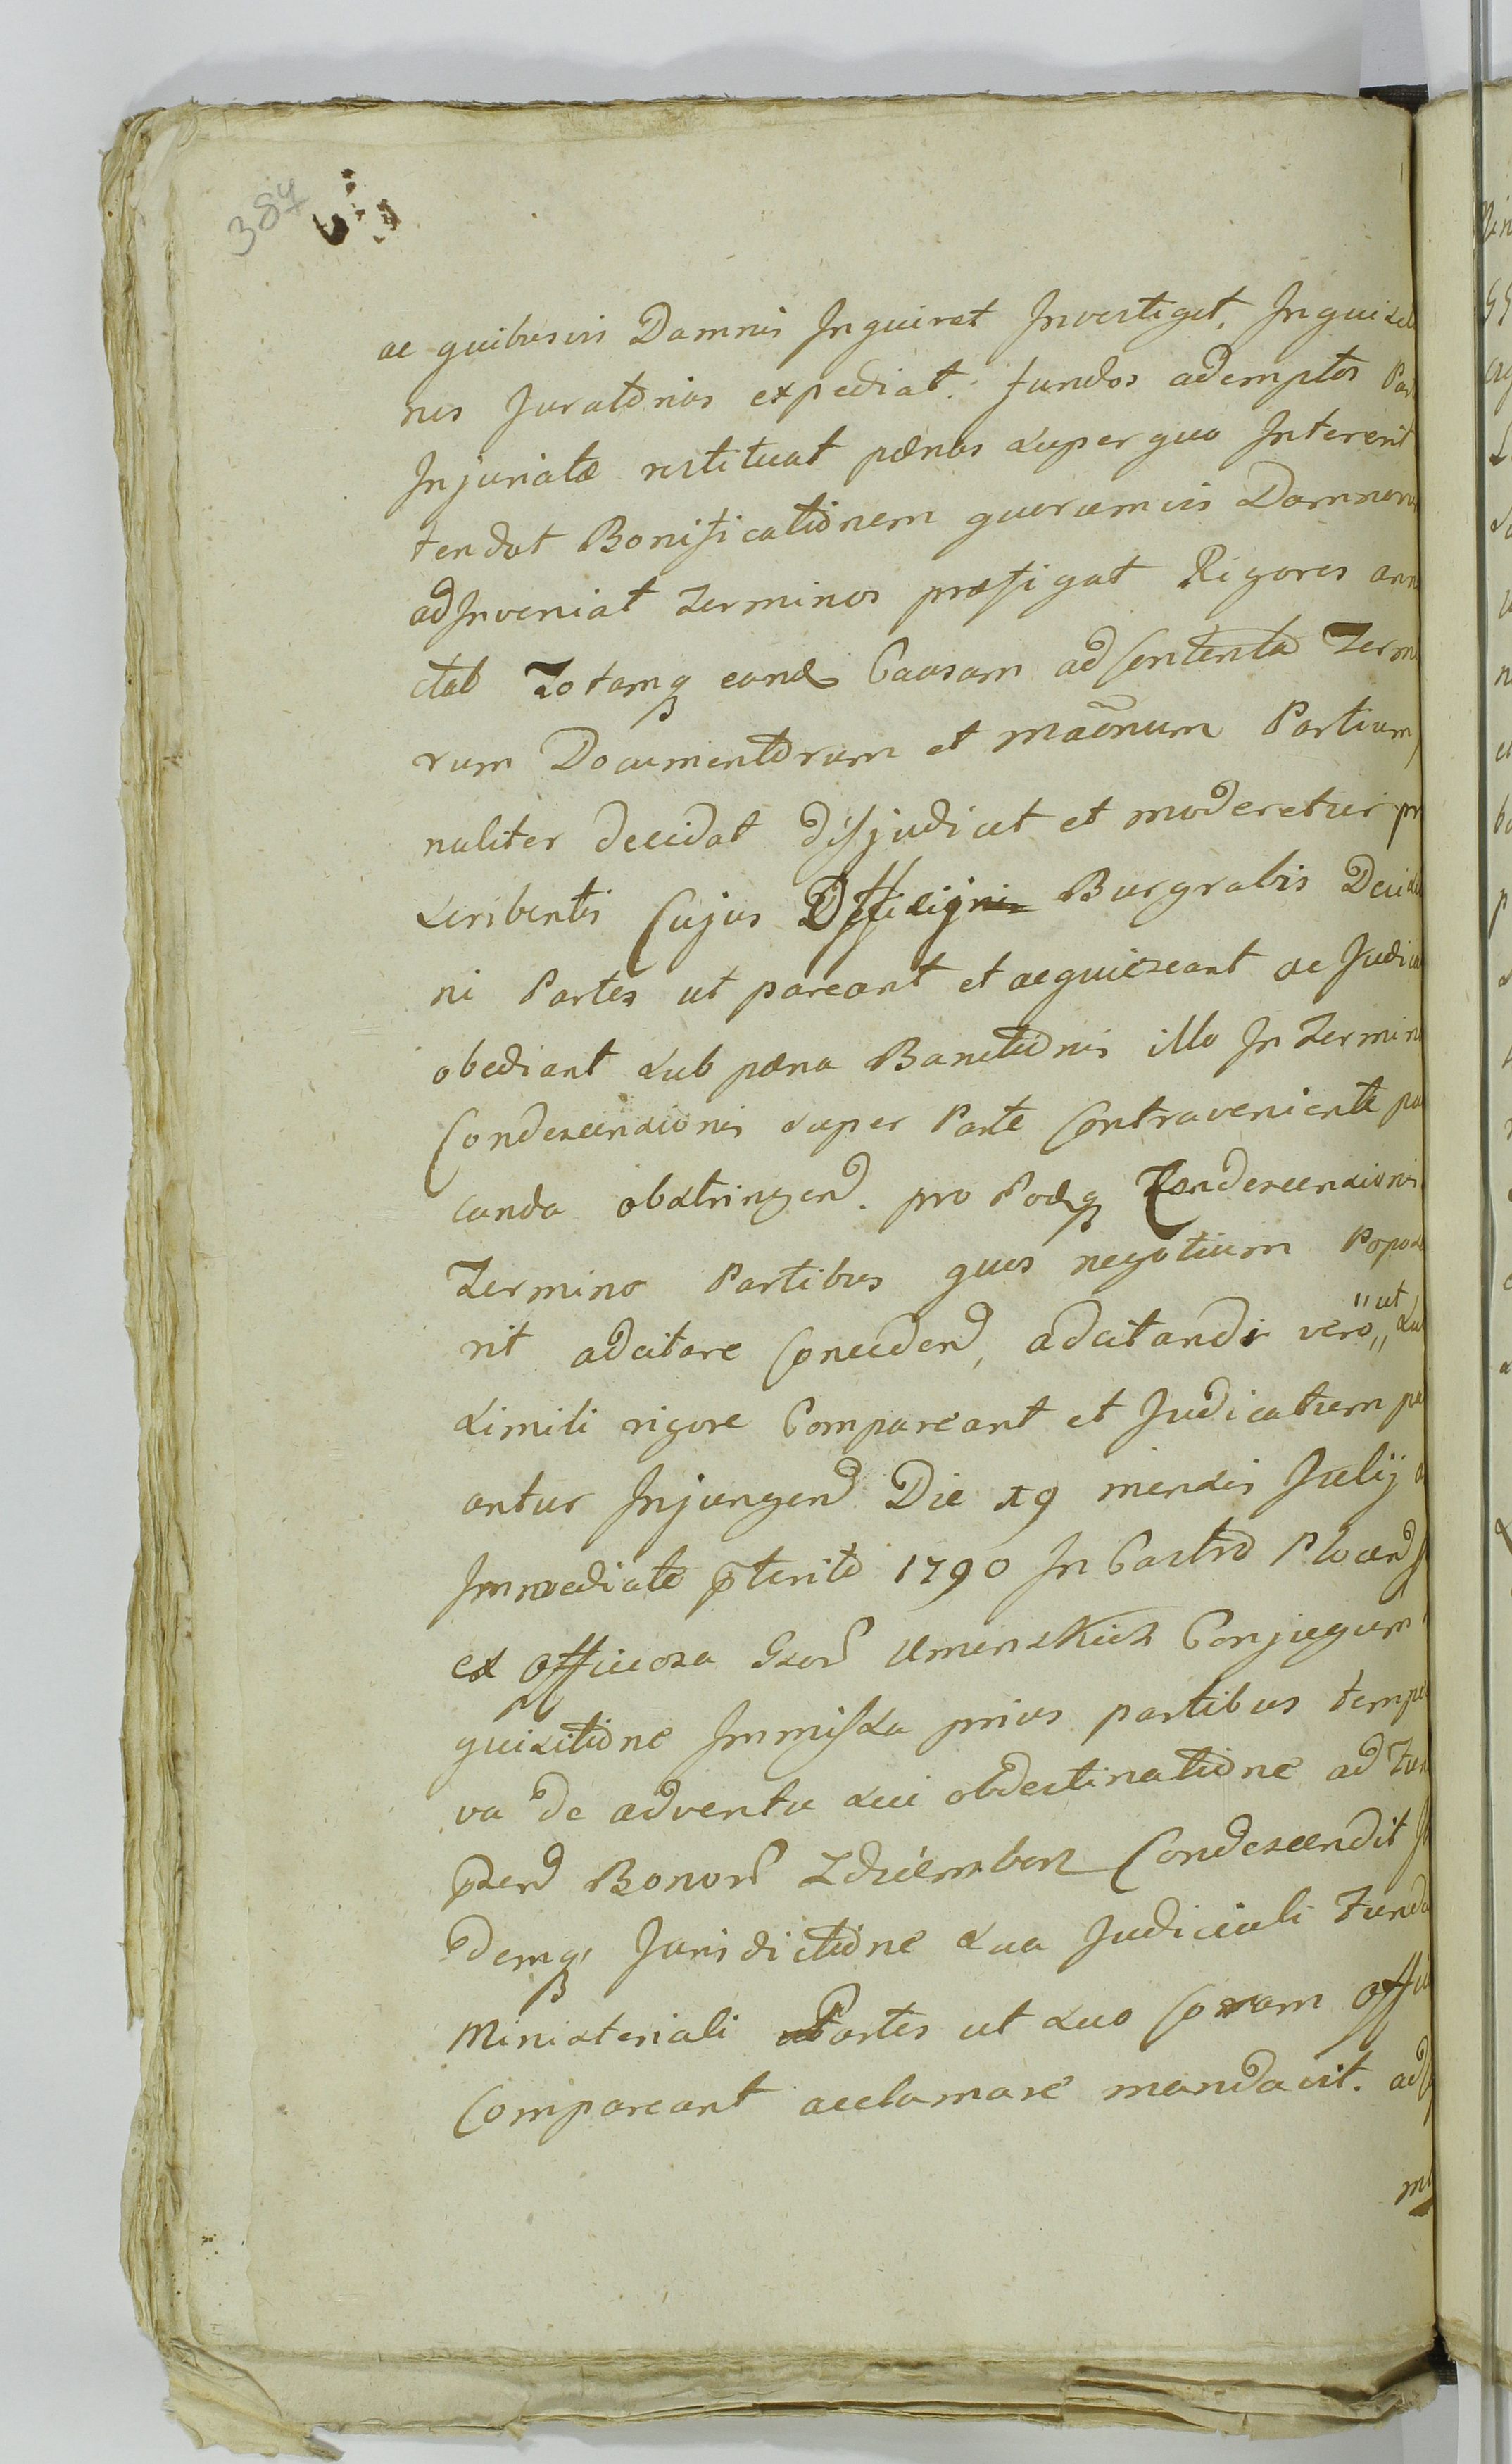 384
ac quibusvis Damnis Inquirat Investiget, Inquisi
nes Juratorias expediat. fundos ademptos Par
Injuriatæ restituat pænas super quo Intererit
tendat Bonificationem quorumvis Damnoru
adInveniat Terminos præfigat Rigores ann
ctat Totamq eand Causam ad contenta Term
rum Documentorum et maõnum Partium
naliter decidat disjudicet et moderetur pr
scribentis Cujus Officij Burgrabis Decisi
ni Partes ut pareant et acquiescant ac Judica
obediant sub pæna Banitionis illo In Termin
Condescensionis super Parte Contraveniente pu
canda obstringend. pro Podq Condescensionis
Termino Partibus quos negotium Popos
rit adcitare Concedend, adcitandi vero "ut" Sub
simili rigore Compareant et Judicatum pa
antur Injungend Die 19 mensis Julij a
Immediate pterito 1790 In Castro Plocens
ex officiosa Gsor Umenskich Conjugum
quisitione Immissa prius partibus tempe
va de adventu sui obdestinatione ad Fun
pser Bonor Zdziembors Condescendit I
demq Jurisdictione sua Judiciali Funda
Ministeriali Partes ut suo Coram offi
Compareant acclamare mandavit. ad